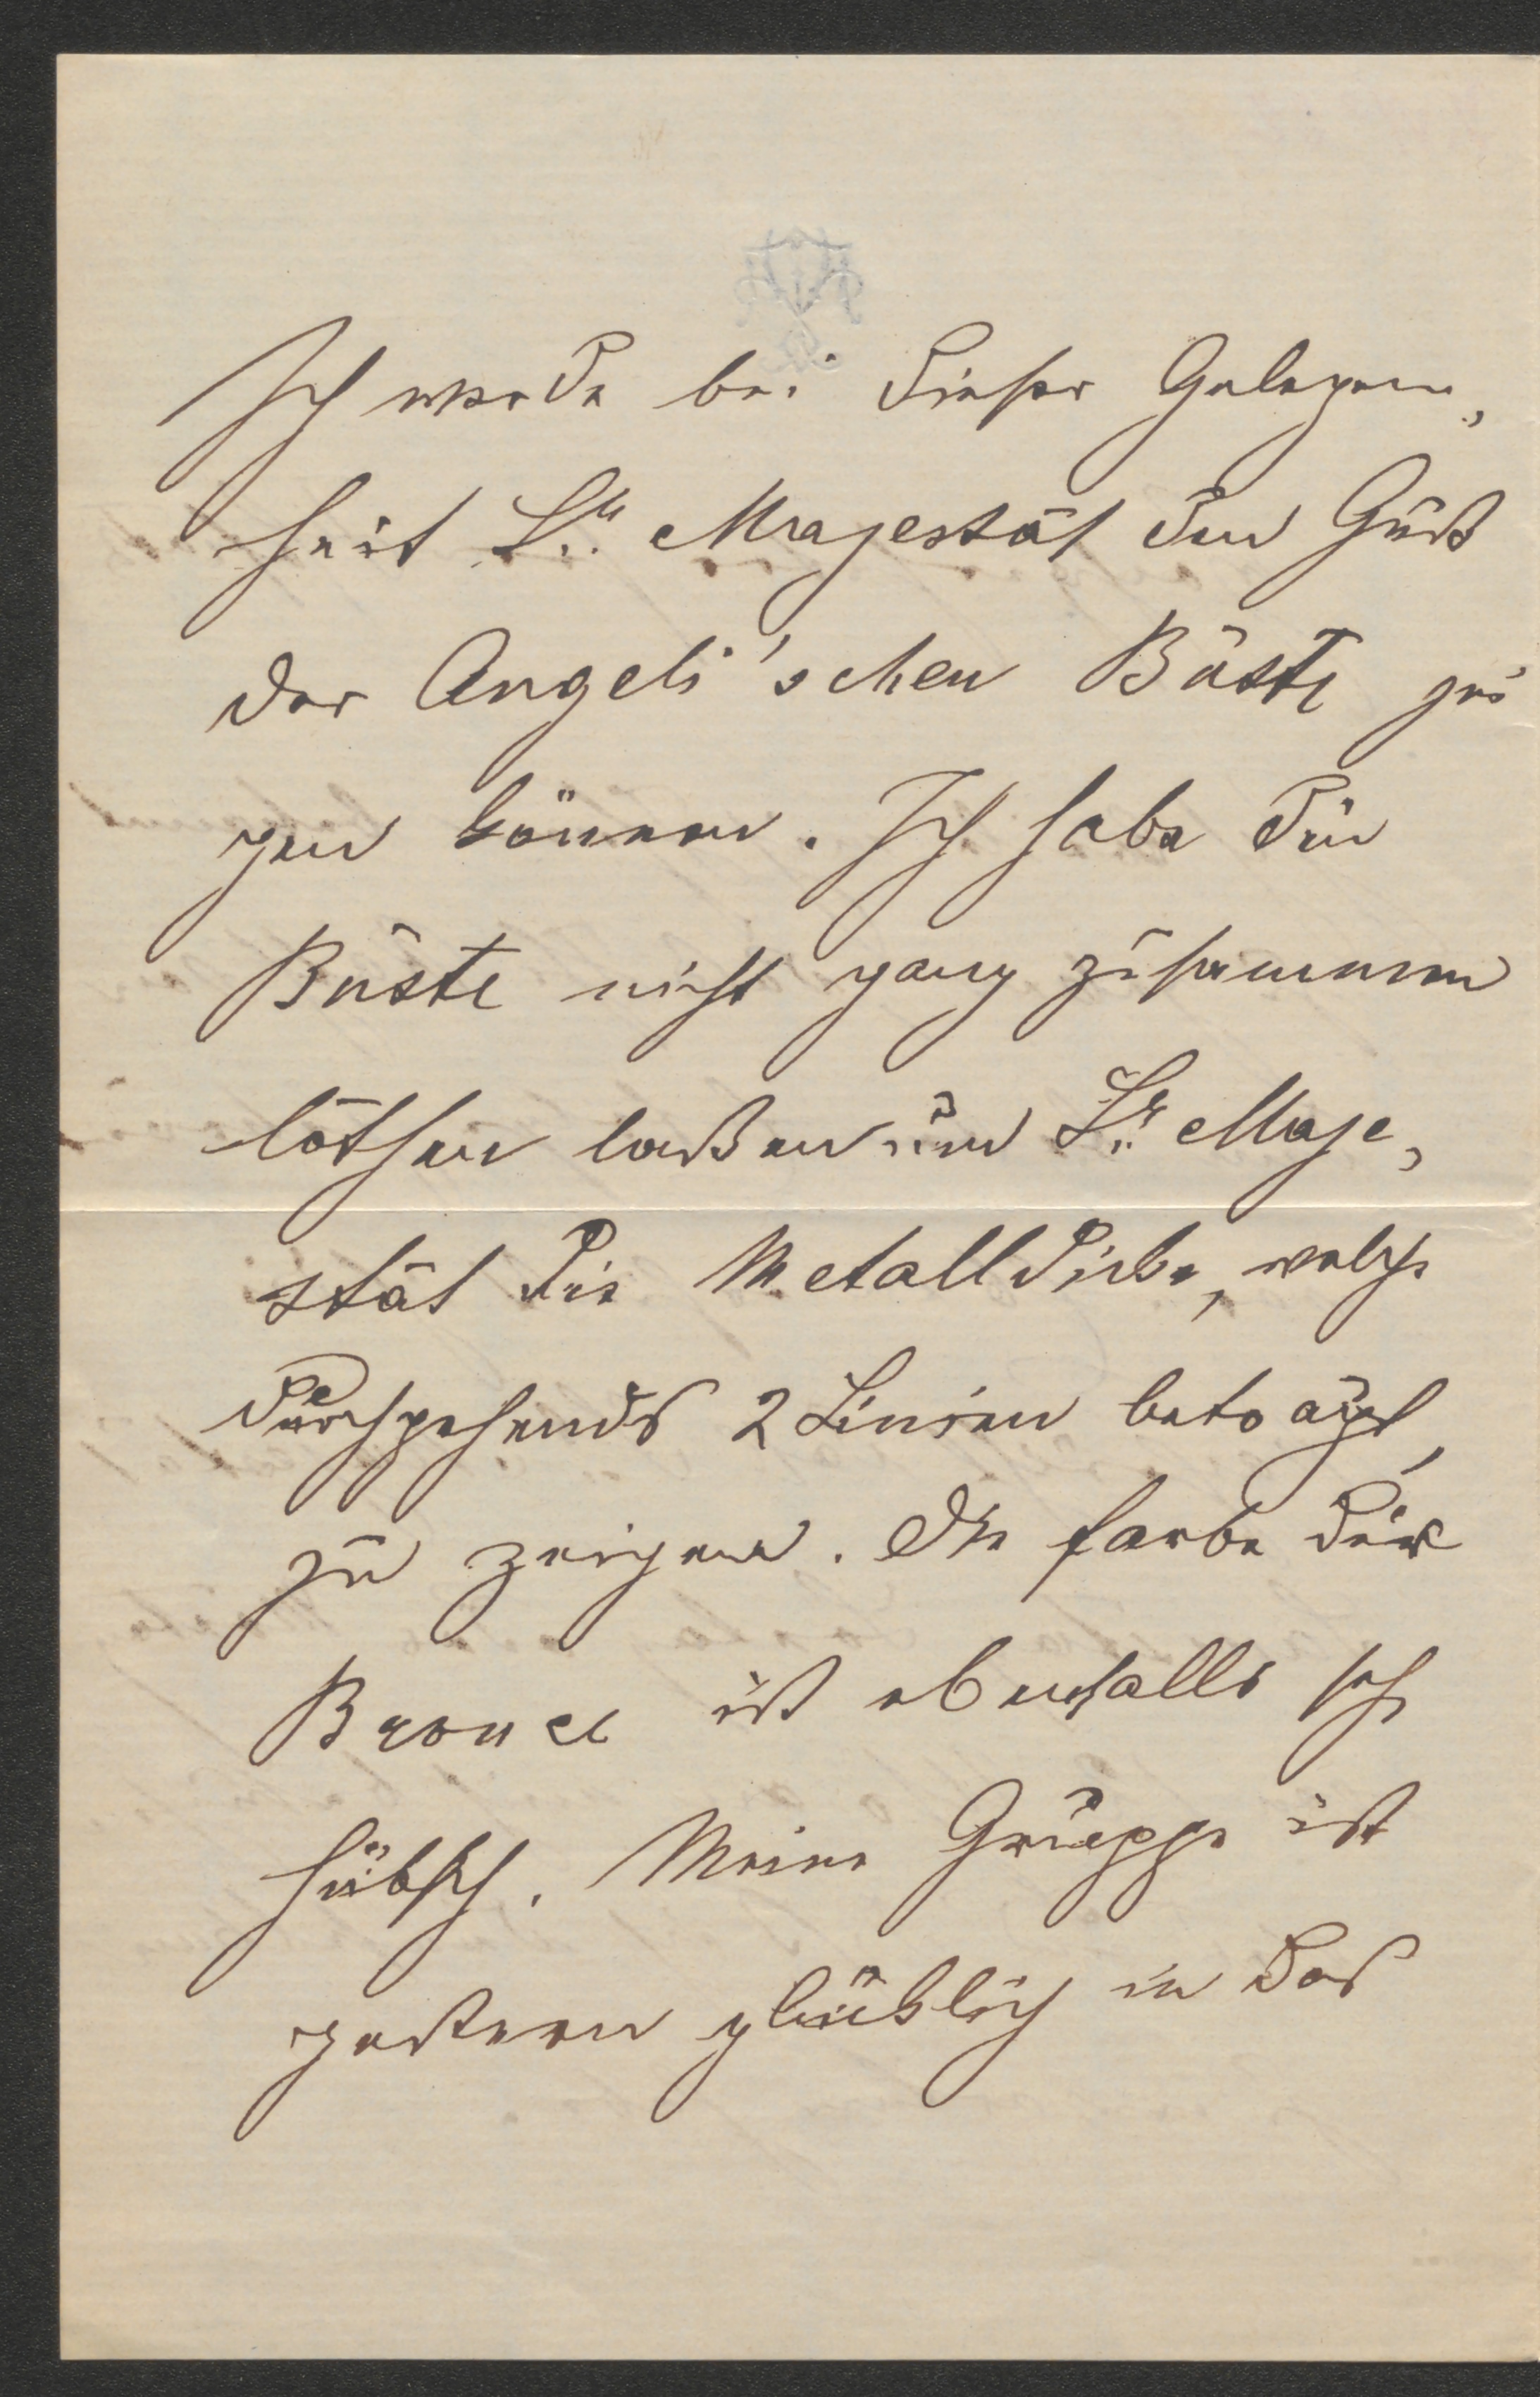 Ich werde bei dieser Gelegen,
heit Sr. Majestät den Guß
der Angeli'schen Büste zei
gen können. Ich habe die
Büste nicht ganz zusammen
löthen laßen um Sr. Maje,
stät die Metalldicke, welche
durchgehends 2 Linien beträgt,
zu zeigen. Die Farbe der
Bronce ist ebenfalls sehr
hübsch. Meine Gruppe ist
gestern glücklich in das